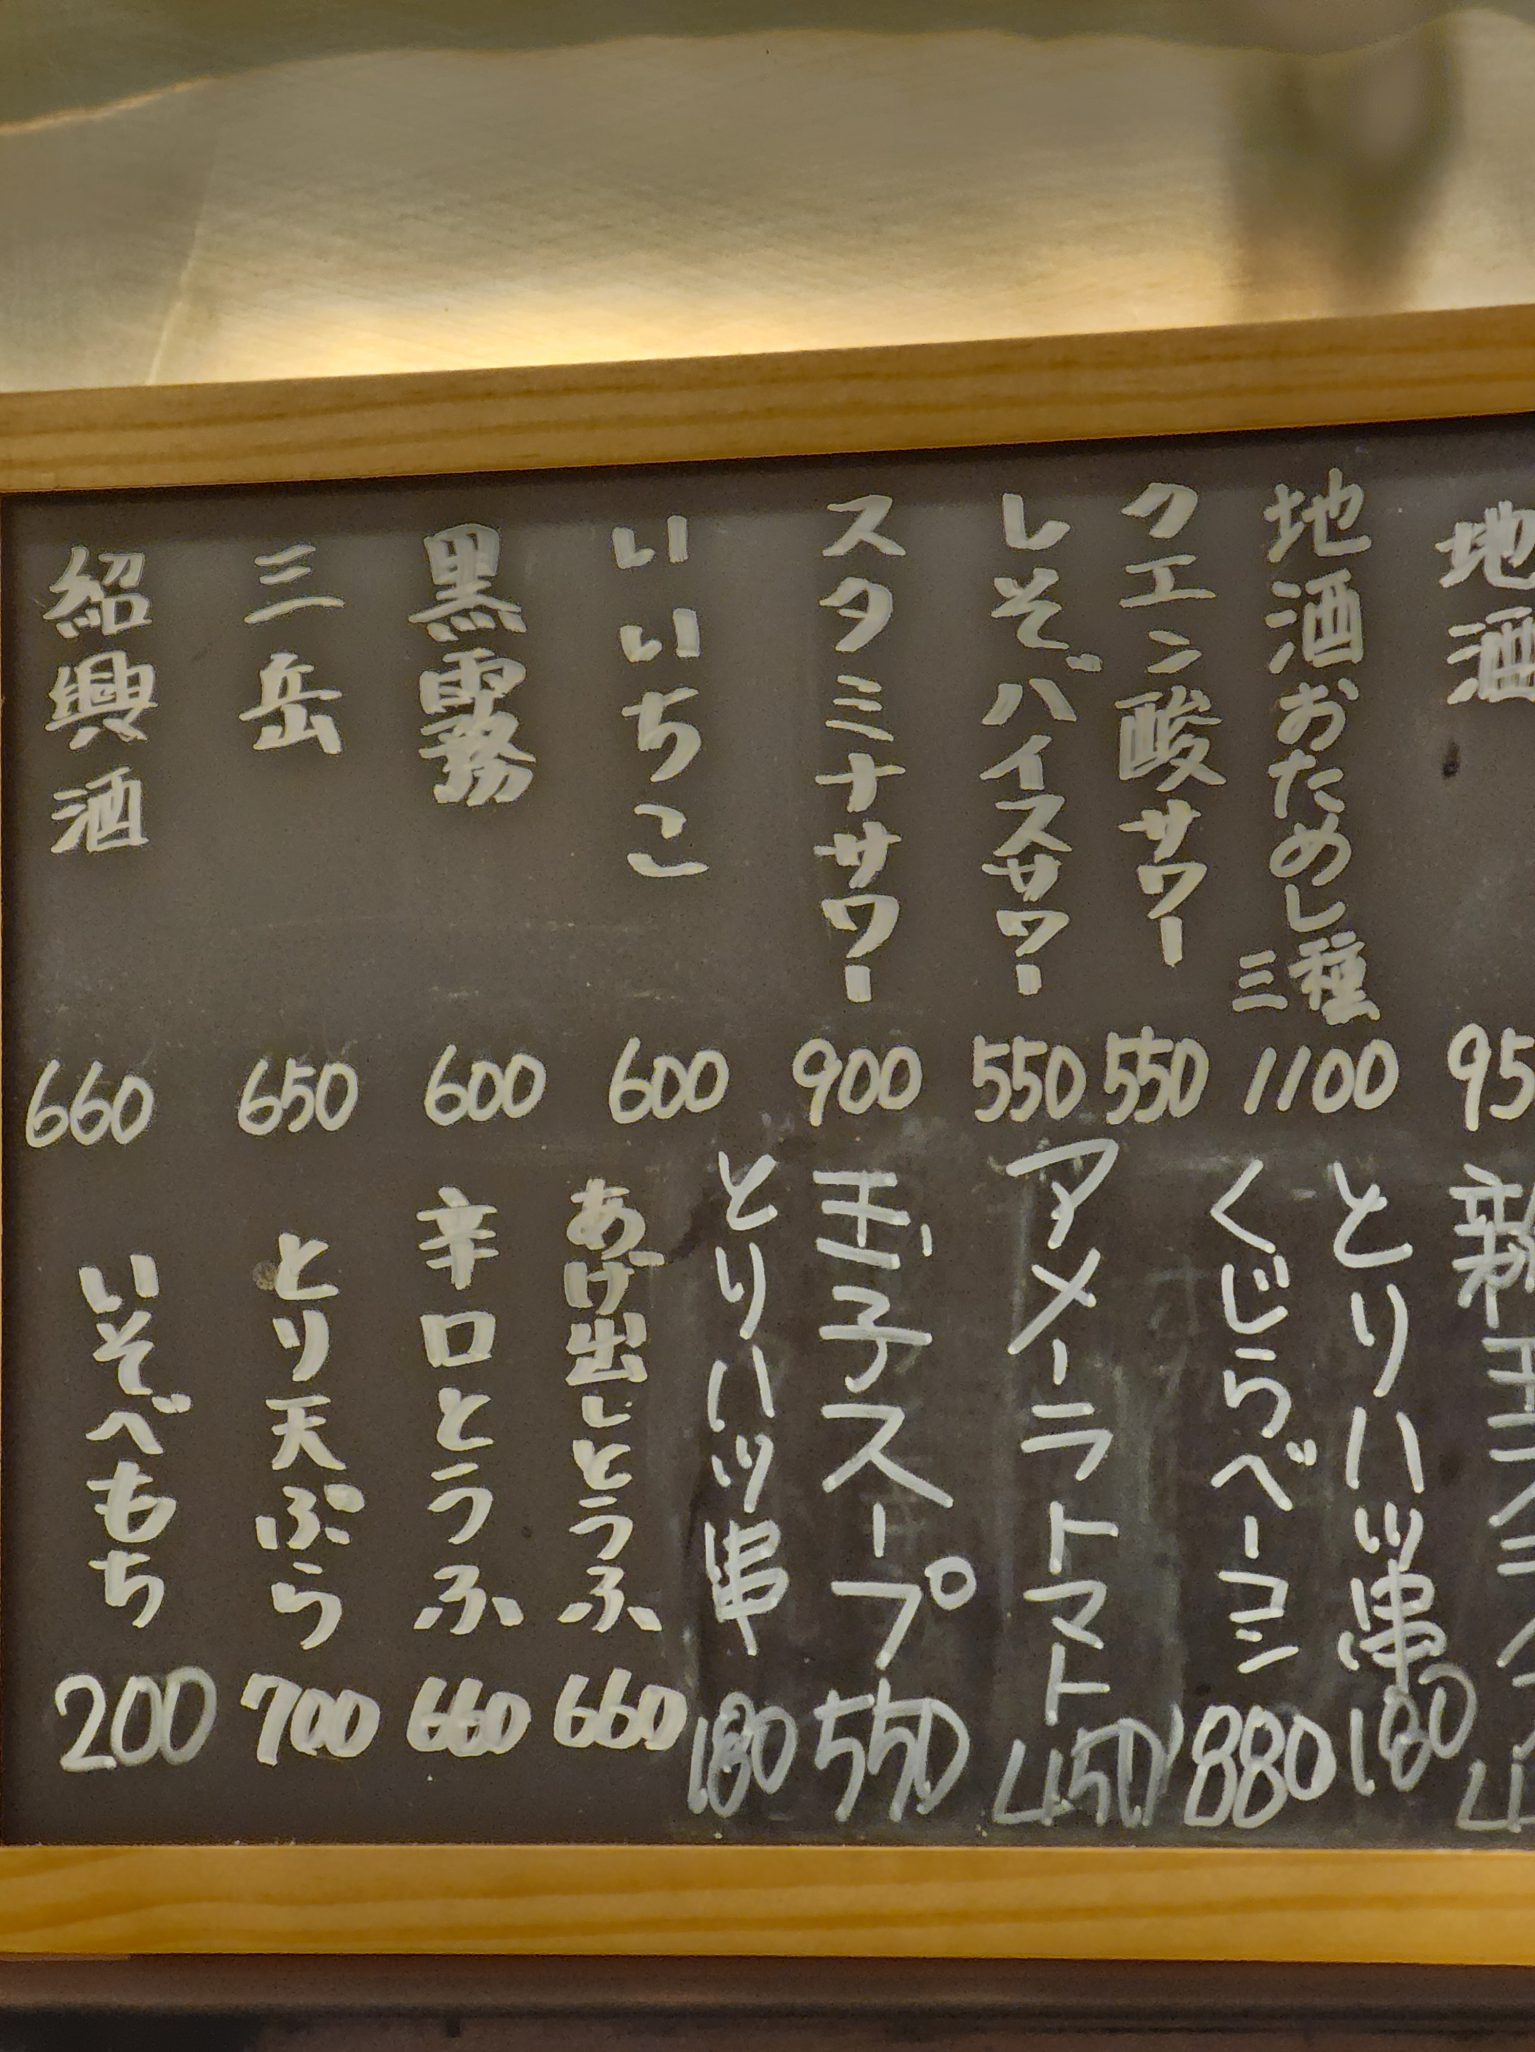 地酒
95
地酒おためし三種
1100
クエン酸サワー
550
しそバイスサワー
550
スタミナサワー
900
いいちこ
600
黒霧
600
三岳
650
紹興酒
660
とりハツ串
180
くじらベーコン
880
アメーラトマト
450
玉子スープ
550
とりハツ串
180
あげ出しとうふ
660
辛口とうふ
660
とり天ぷら
700
いそべもち
200